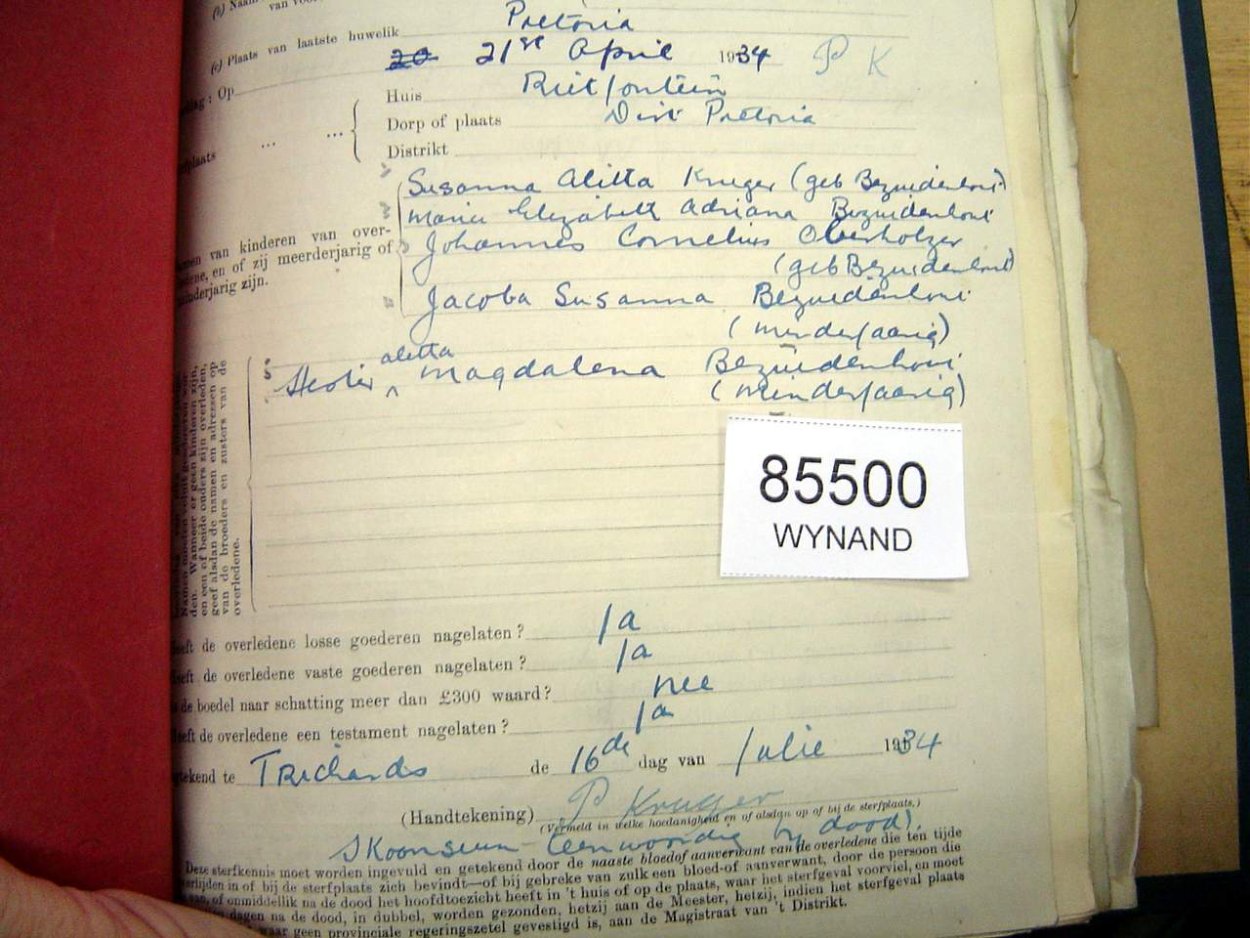 (b) Naam
van
(c) Plaats van laatste huwelik Pretoria
: Op 20 21st April 1934 P K
Huis Rietfontein
... ... Dorp of plaats Dist Pretoria
Distrikt
Susanna Alitta Kruger (geb Bezuidenhout)
Maria Elizabeth Adriana Bezuidenhout
van kinderen van over-
en of zij meerderjarig of
zijn.
Johannes Cornelius Oberholzer
(geb Bezuidenhout)
Jacoba Susanna Bezuidenhout
(minderjaarig)
aletta
Hester ^ Magdalena Bezuidenhout
(minderjaarig)
den. Wanneer er geen kinderen zijn,
en een of beide ouders zijn overleden,
geef alsdan de namen en adressen op
van de broeders en zusters van de
overledene.
85500
WYNAND
de overledene losse goederen nagelaten? Ja
de overledene vaste goederen nagelaten? Ja
de boedel naar schatting meer dan £300 waard? nee
de overledene een testament nagelaten? Ja
te Trichards de 16de dag van Julie 1934
(Handtekening) P Kruger
(Vermeld in welke hoedanigheid en of alsdan op of bij de sterfplaats.)
Skoonseun teenwoordig by dood).
Deze sterfkennis moet worden ingevuld en getekend door de naaste bloedof aanverwant van de overledene die ten tijde
in of bij de sterfplaats zich bevindt—of bij gebreke van zulk een bloed-of aanverwant, door de persoon die
of onmiddellik na de dood het hoofdtoezicht heeft in 't huis of op de plaats, waar het sterfgeval voorviel, en moet
dagen na de dood, in dubbel, worden gezonden, hetzij aan de Meester, hetzij, indien het sterfgeval plaats
waar geen provinciale regeringszetel gevestigd is, aan de Magistraat van 't Distrikt.